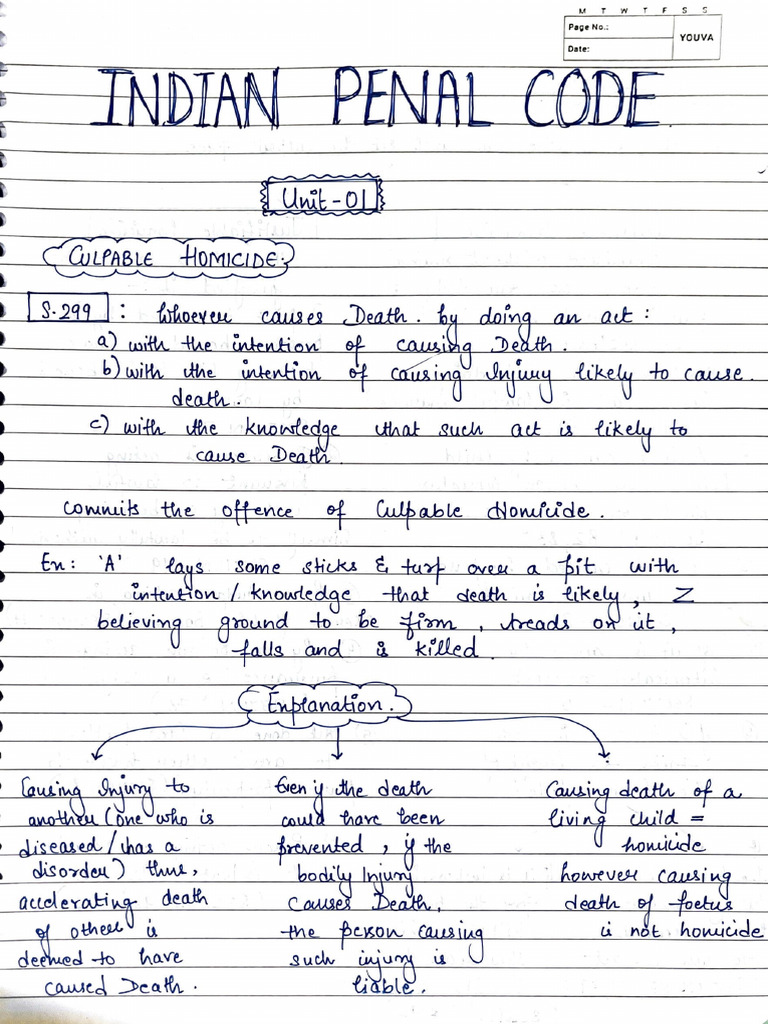 M T W T F S S
Page No.:
YOUVA
Date:
INDIAN PENAL CODE
Unit-01
CULPABLE HOMICIDE.
S.299 : Whoever causes Death. by doing an act :
a) with the intention of causing Death.
b) with the intention of causing Injury likely to cause
death.
c) with the knowledge that such act is likely to
cause Death.
commits the offence of Culpable Homicide.
Ex: 'A' lays some sticks & turf over a pit with
intention / knowledge that death is likely, Z
believing ground to be firm, treads on it,
falls and is killed.
Explanation.
Causing Injury to
another (one who is
diseased / has a
disorder) thus,
accelerating death
of other is
deemed to have
caused Death.
Even if the death
could have been
prevented, if the
bodily Injury
Causes Death,
the person causing
such injury is
liable.
Causing death of a
living child =
homicide
however causing
death of foetus
is not homicide